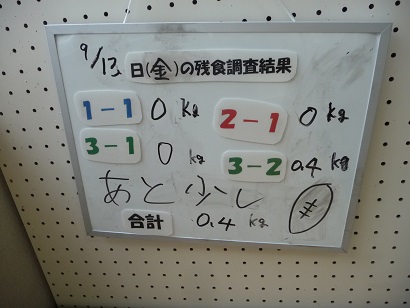 9/13日(金)の残食調査結果
1-1 0 kg 2-1 0 kg
3-1 0 kg 3-2 0.4 kg
あと少し
合計 0.4 kg